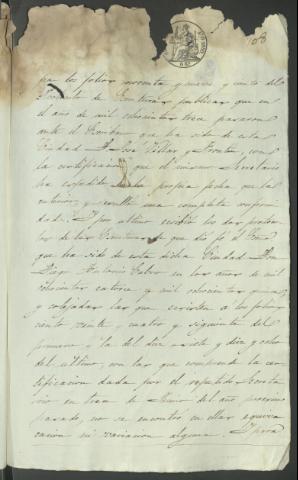 108
por los folios noventa y nueve y ciento del
de Escrituras publicas que en
el año de mil ochocientos trece pasaron
ante el Escribano que ha sido de esta
Ciudad D. José Villar y Fronton, con
la certificacion que el mismo Secretario
ha espedido la propia fecha que las
anteriores, y resulta una completa conformi
dad. Y por ultimo exhibió los dos protoco
los de las Escrituras de que dió fé el Escno
que ha sido de esta dicha Ciudad Don
Diego Antonio Calvo en los años de mil
ochocientos catorce y mil ochocientos quince
y cotejadas las que existen a los folios
ciento veinte y cuatro y siguiente del
primero y la del diez y siete y diez y ocho
del ultimo, con las que comprende la cer
tificacion dada por el repetido Secreta
rio en tres de Junio del año procsimo
pasado, no se encontró en ellas equivo
cacion ni variacion alguna. Y para